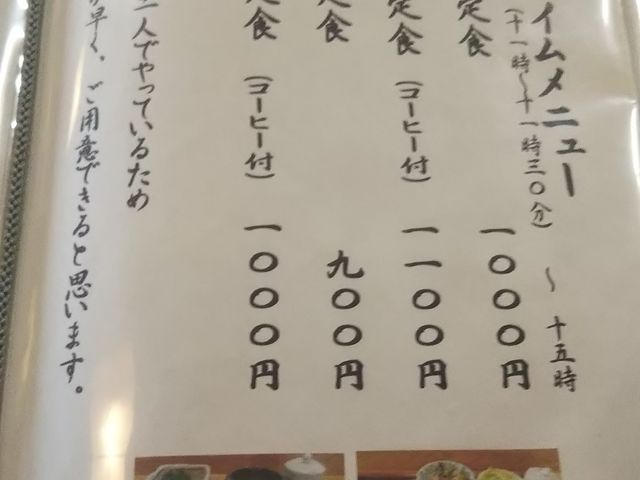 イムメニュー
(十一時〜十一時三〇分) 〜 十五時
定食 一〇〇〇円
定食 (コーヒー付) 一一〇〇円
定食 九〇〇円
定食 (コーヒー付) 一〇〇〇円
一人でやっているため
早く、ご用意できると思います。